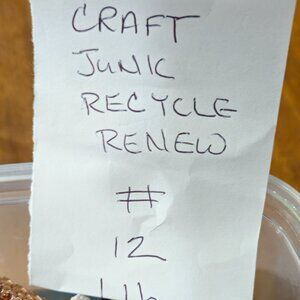 CRAFT
JUNK
RECYCLE
RENEW
#
12